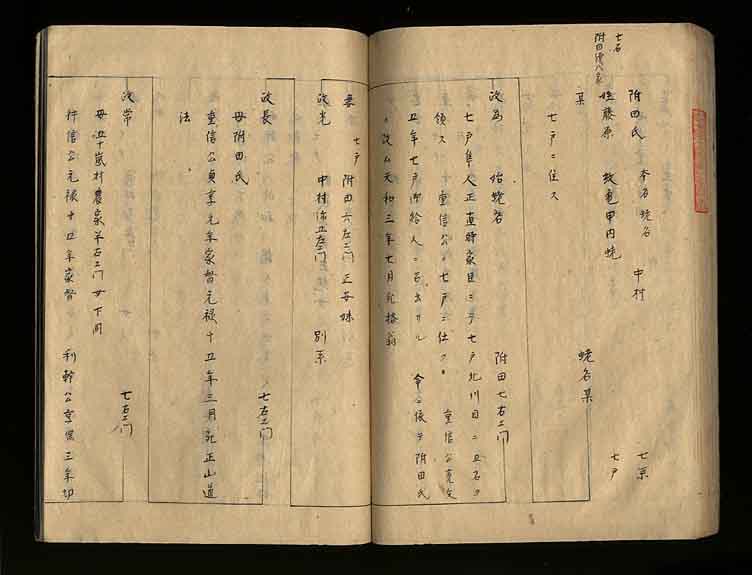 七戸
附田氏 本名蛯名 中村 七系
姓藤原 紋亀甲内蛯 七戸
某 蛯名某
七戸ニ住ス
政為 始蛯名 附田七右エ門
七戸隼人正直時家臣ニテ七戸北川目ニ五石ヲ
領ス 重信公七戸ニ仕 重信公寛文
五年七戸御給人ニ召出サル 命ニ依テ附田氏
ニ改ム天和三年七月死
妻 七戸附田六左エ門正安妹
政光 中村弥五左エ門 別系
政長 七右エ門
母附田氏
重信公貞享元年家督元禄十五年三月死正山道
法
政常 七右エ門
母五十嵐村農家羊右エ門女下同
行信公元禄十五年家督 利幹公重保三年切